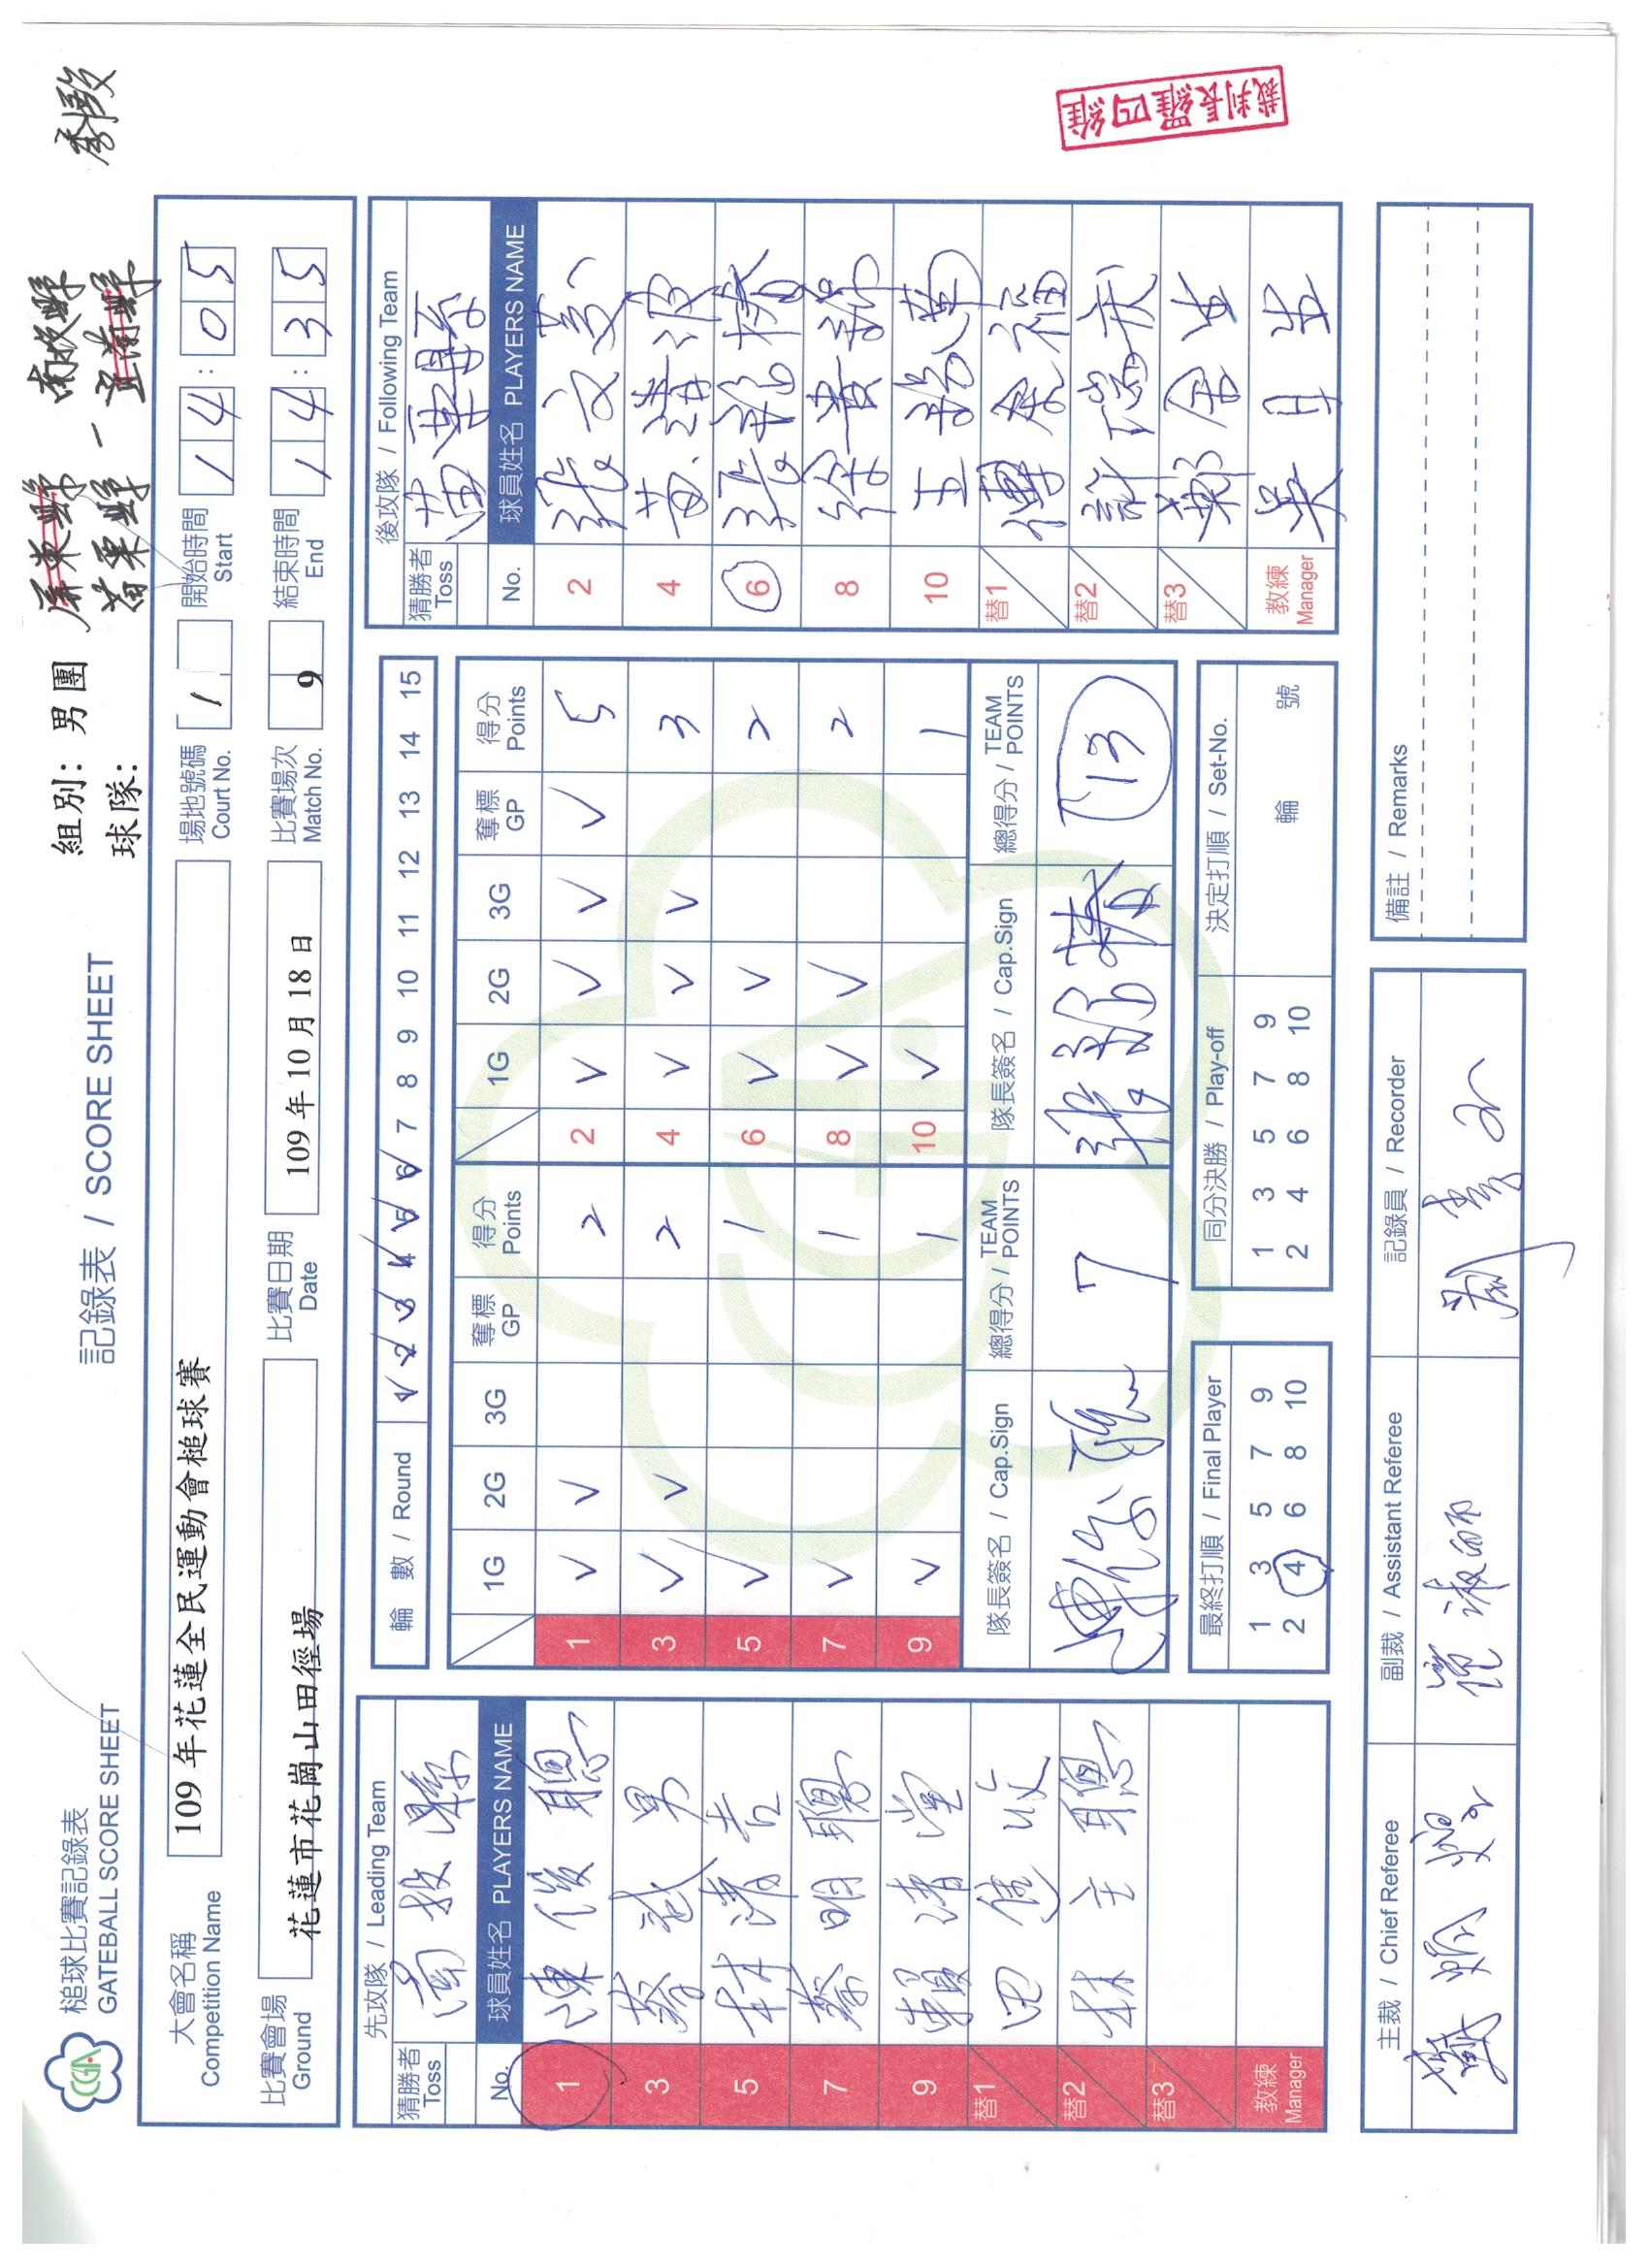 槌球比賽記錄表
GATEBALL SCORE SHEET
記錄表 / SCORE SHEET
組別: 男團
球隊:
屏東縣 南投縣
苗栗縣 - 宜蘭縣
大會名稱
Competition Name
109 年花蓮全民運動會槌球賽
場地號碼
Court No.
1
開始時間
Start
14:05
比賽會場
Ground
花蓮市花崗山田徑場
比賽日期
Date
109 年 10 月 18 日
比賽場次
Match No.
9
結束時間
End
14:35
先攻隊 / Leading Team
猜勝者
Toss
南投縣
No. 球員姓名 PLAYERS NAME
1 陳俊聰
3 蔡武男
5 林清吉
7 蔡明聰
9 賴清
替1 田
替2 林主聰
替3
教練
Manager
輪 數 / Round 1 2 3 4 5 6 7 8 9 10 11 12 13 14 15
1G 2G 3G 奪標 GP 得分 Points
1 V V 2
3 V V 2
5 V 1
7 V 1
9 V 1
1G 2G 3G 奪標 GP 得分 Points
2 V V V V 5
4 V V V 3
6 V V 2
8 V V 2
10 V 1
隊長簽名 / Cap.Sign
總得分 / TEAM POINTS
7
隊長簽名 / Cap.Sign
總得分 / TEAM POINTS
13
最終打順 / Final Player
1 3 5 7 9
2 4 6 8 10
同分決勝 / Play-off
1 3 5 7 9
2 4 6 8 10
決定打順 / Set-No.
輪 號
後攻隊 / Following Team
猜勝者
Toss
苗栗縣
No. 球員姓名 PLAYERS NAME
2 張文
4 黃清波
6 張
8 徐
10 王
替1 傅 福
替2 許瑞
替3 鄭
教練
Manager
吳月
主裁 / Chief Referee
副裁 / Assistant Referee
記錄員 / Recorder
備註 / Remarks
裁判長羅四維